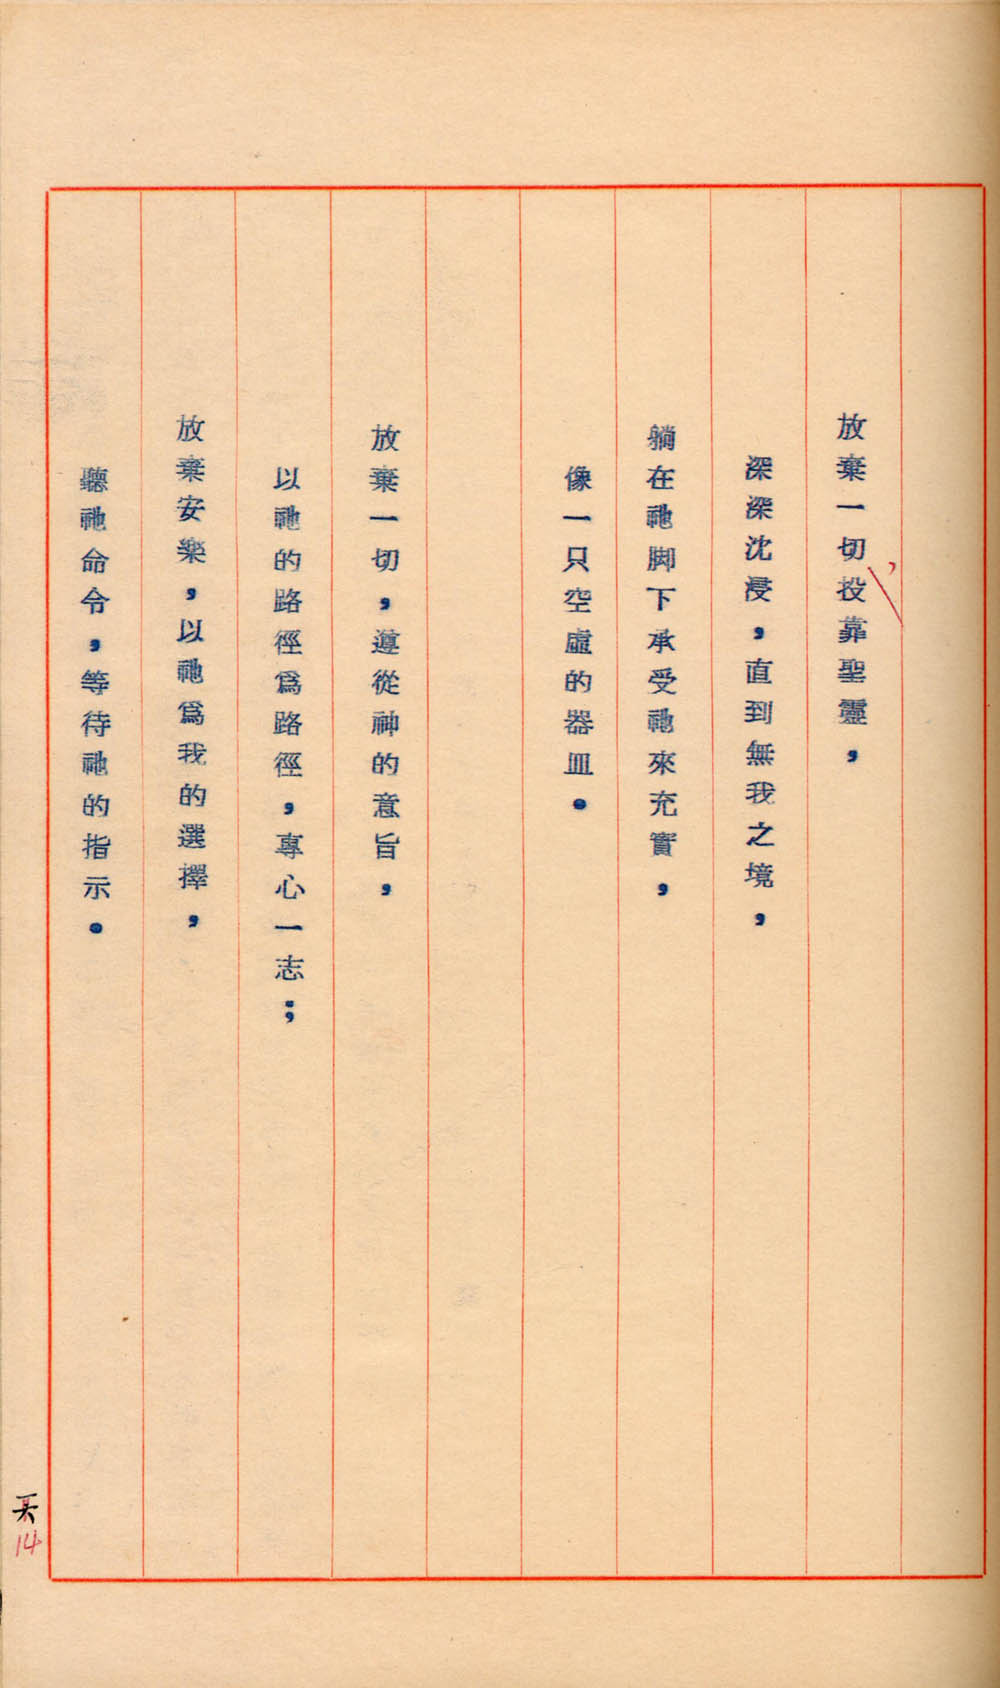 放棄一切，投靠聖靈，
深深沈浸，直到無我之境，
躺在祂脚下承受祂來充實，
像一只空虛的器皿。
放棄一切，遵從神的意旨，
以祂的路徑爲路徑，專心一志；
放棄安樂，以祂爲我的選擇，
聽祂命令，等待祂的指示。
14